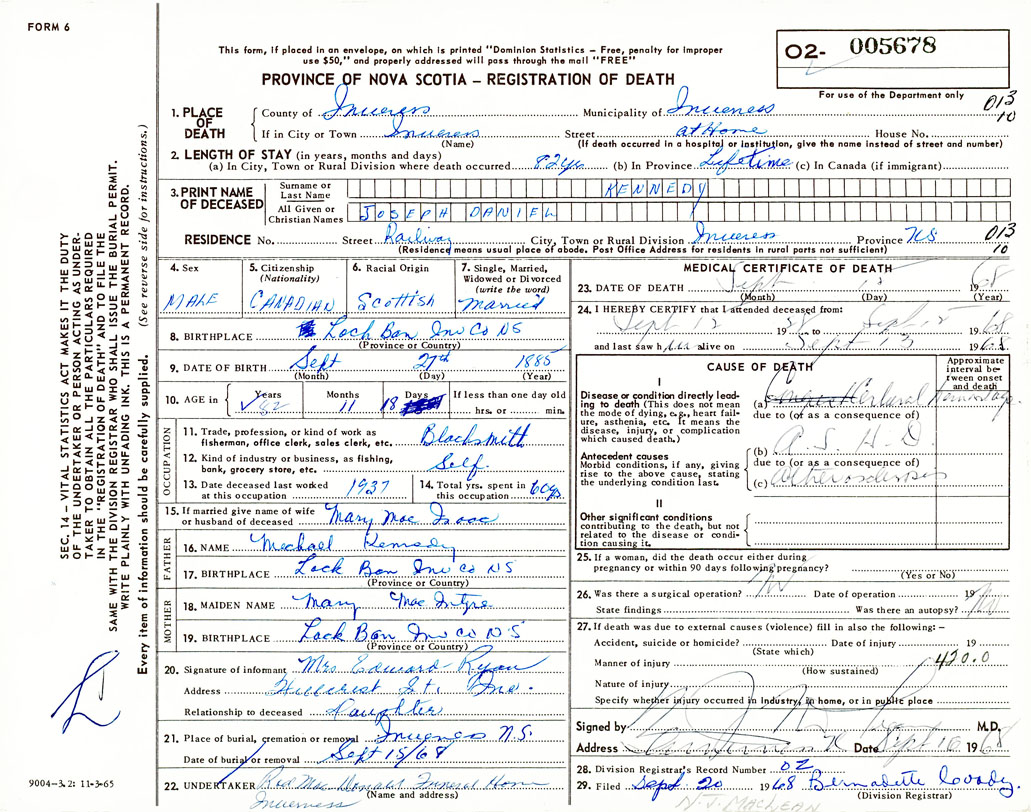 FORM 6
This form, if placed in an envelope, on which is printed "Dominion Statistics – Free, penalty for improper
use $50," and properly addressed will pass through the mail "FREE"
PROVINCE OF NOVA SCOTIA – REGISTRATION OF DEATH
02- 005678
For use of the Department only
013
10
1. PLACE OF DEATH
County of Inverness Municipality of Inverness
If in City or Town Inverness Street at Home House No.
(Name) (If death occurred in a hospital or institution, give the name instead of street and number)
2. LENGTH OF STAY (in years, months and days)
(a) In City, Town or Rural Division where death occurred 82 yrs (b) In Province Lifetime (c) In Canada (if immigrant)
3. PRINT NAME OF DECEASED
Surname or Last Name KENNEDY
All Given or Christian Names JOSEPH DANIEL
RESIDENCE No. Street Railway City, Town or Rural Division Inverness Province NS
013
10
(Residence means usual place of abode. Post Office Address for residents in rural parts not sufficient)
4. Sex MALE
5. Citizenship (Nationality) CANADIAN
6. Racial Origin Scottish
7. Single, Married, Widowed or Divorced (write the word) Married
8. BIRTHPLACE Loch Ban Inv Co NS
(Province or Country)
9. DATE OF BIRTH Sept 27th 1885
(Month) (Day) (Year)
10. AGE in Years 82 Months 11 Days 18 If less than one day old hrs. or min.
OCCUPATION
11. Trade, profession, or kind of work as fisherman, office clerk, sales clerk, etc. Blacksmith
12. Kind of industry or business, as fishing, bank, grocery store, etc. Self.
13. Date deceased last worked at this occupation 1937
14. Total yrs. spent in this occupation 60 yrs
15. If married give name of wife or husband of deceased Mary Mac Isaac
FATHER
16. NAME Michael Kennedy
17. BIRTHPLACE Lock Ban Inv Co NS
(Province or Country)
MOTHER
18. MAIDEN NAME Mary Mac Intyre
19. BIRTHPLACE Lock Ban Inv Co N S
(Province or Country)
20. Signature of informant Mrs Edward Ryan
Address Hillcrest St. Inv.
Relationship to deceased Daughter
21. Place of burial, cremation or removal Inverness N.S.
Date of burial or removal Sept 15/68
22. UNDERTAKER Rod Mac Donald Funeral Home
(Name and address)
Inverness
MEDICAL CERTIFICATE OF DEATH
23. DATE OF DEATH Sept 1968
(Month) (Day) (Year)
24. I HEREBY CERTIFY that I attended deceased from:
Sept 12 19 to Sept 1968
and last saw h alive on Sept 13 1968
CAUSE OF DEATH
Approximate interval between onset and death
I
Disease or condition directly leading to death (This does not mean the mode of dying, e.g., heart failure, asthenia, etc. It means the disease, injury, or complication which caused death.)
(a) Hemorrhage
due to (or as a consequence of)
Antecedent causes
Morbid conditions, if any, giving rise to the above cause, stating the underlying condition last.
(b) A.S.H.D
due to (or as a consequence of)
(c) Atherosclerosis
II
Other significant conditions
contributing to the death, but not related to the disease or condition causing it.
25. If a woman, did the death occur either during
pregnancy or within 90 days following pregnancy?
(Yes or No)
26. Was there a surgical operation? No Date of operation 19
State findings Was there an autopsy? No
27. If death was due to external causes (violence) fill in also the following: –
Accident, suicide or homicide? Date of injury 19
(State which)
Manner of injury 420.0
(How sustained)
Nature of injury
Specify whether injury occurred in Industry, in home, or in public place
Signed by M.D.
Address Inverness Date Sept 16 1968
28. Division Registrar's Record Number 02
29. Filed Sept. 20 1968 Bernadette Coody
(Division Registrar)
N.J. MACLEAN
SEC. 14 – VITAL STATISTICS ACT MAKES IT THE DUTY
OF THE UNDERTAKER OR PERSON ACTING AS UNDER-
TAKER TO OBTAIN ALL THE PARTICULARS REQUIRED
IN THE "REGISTRATION OF DEATH" AND TO FILE THE
SAME WITH THE DIVISION REGISTRAR WHO SHALL ISSUE THE BURIAL PERMIT.
WRITE PLAINLY WITH UNFADING INK. THIS IS A PERMANENT RECORD.
Every item of information should be carefully supplied. (See reverse side for instructions.)
9004-3.2: 11-3-65